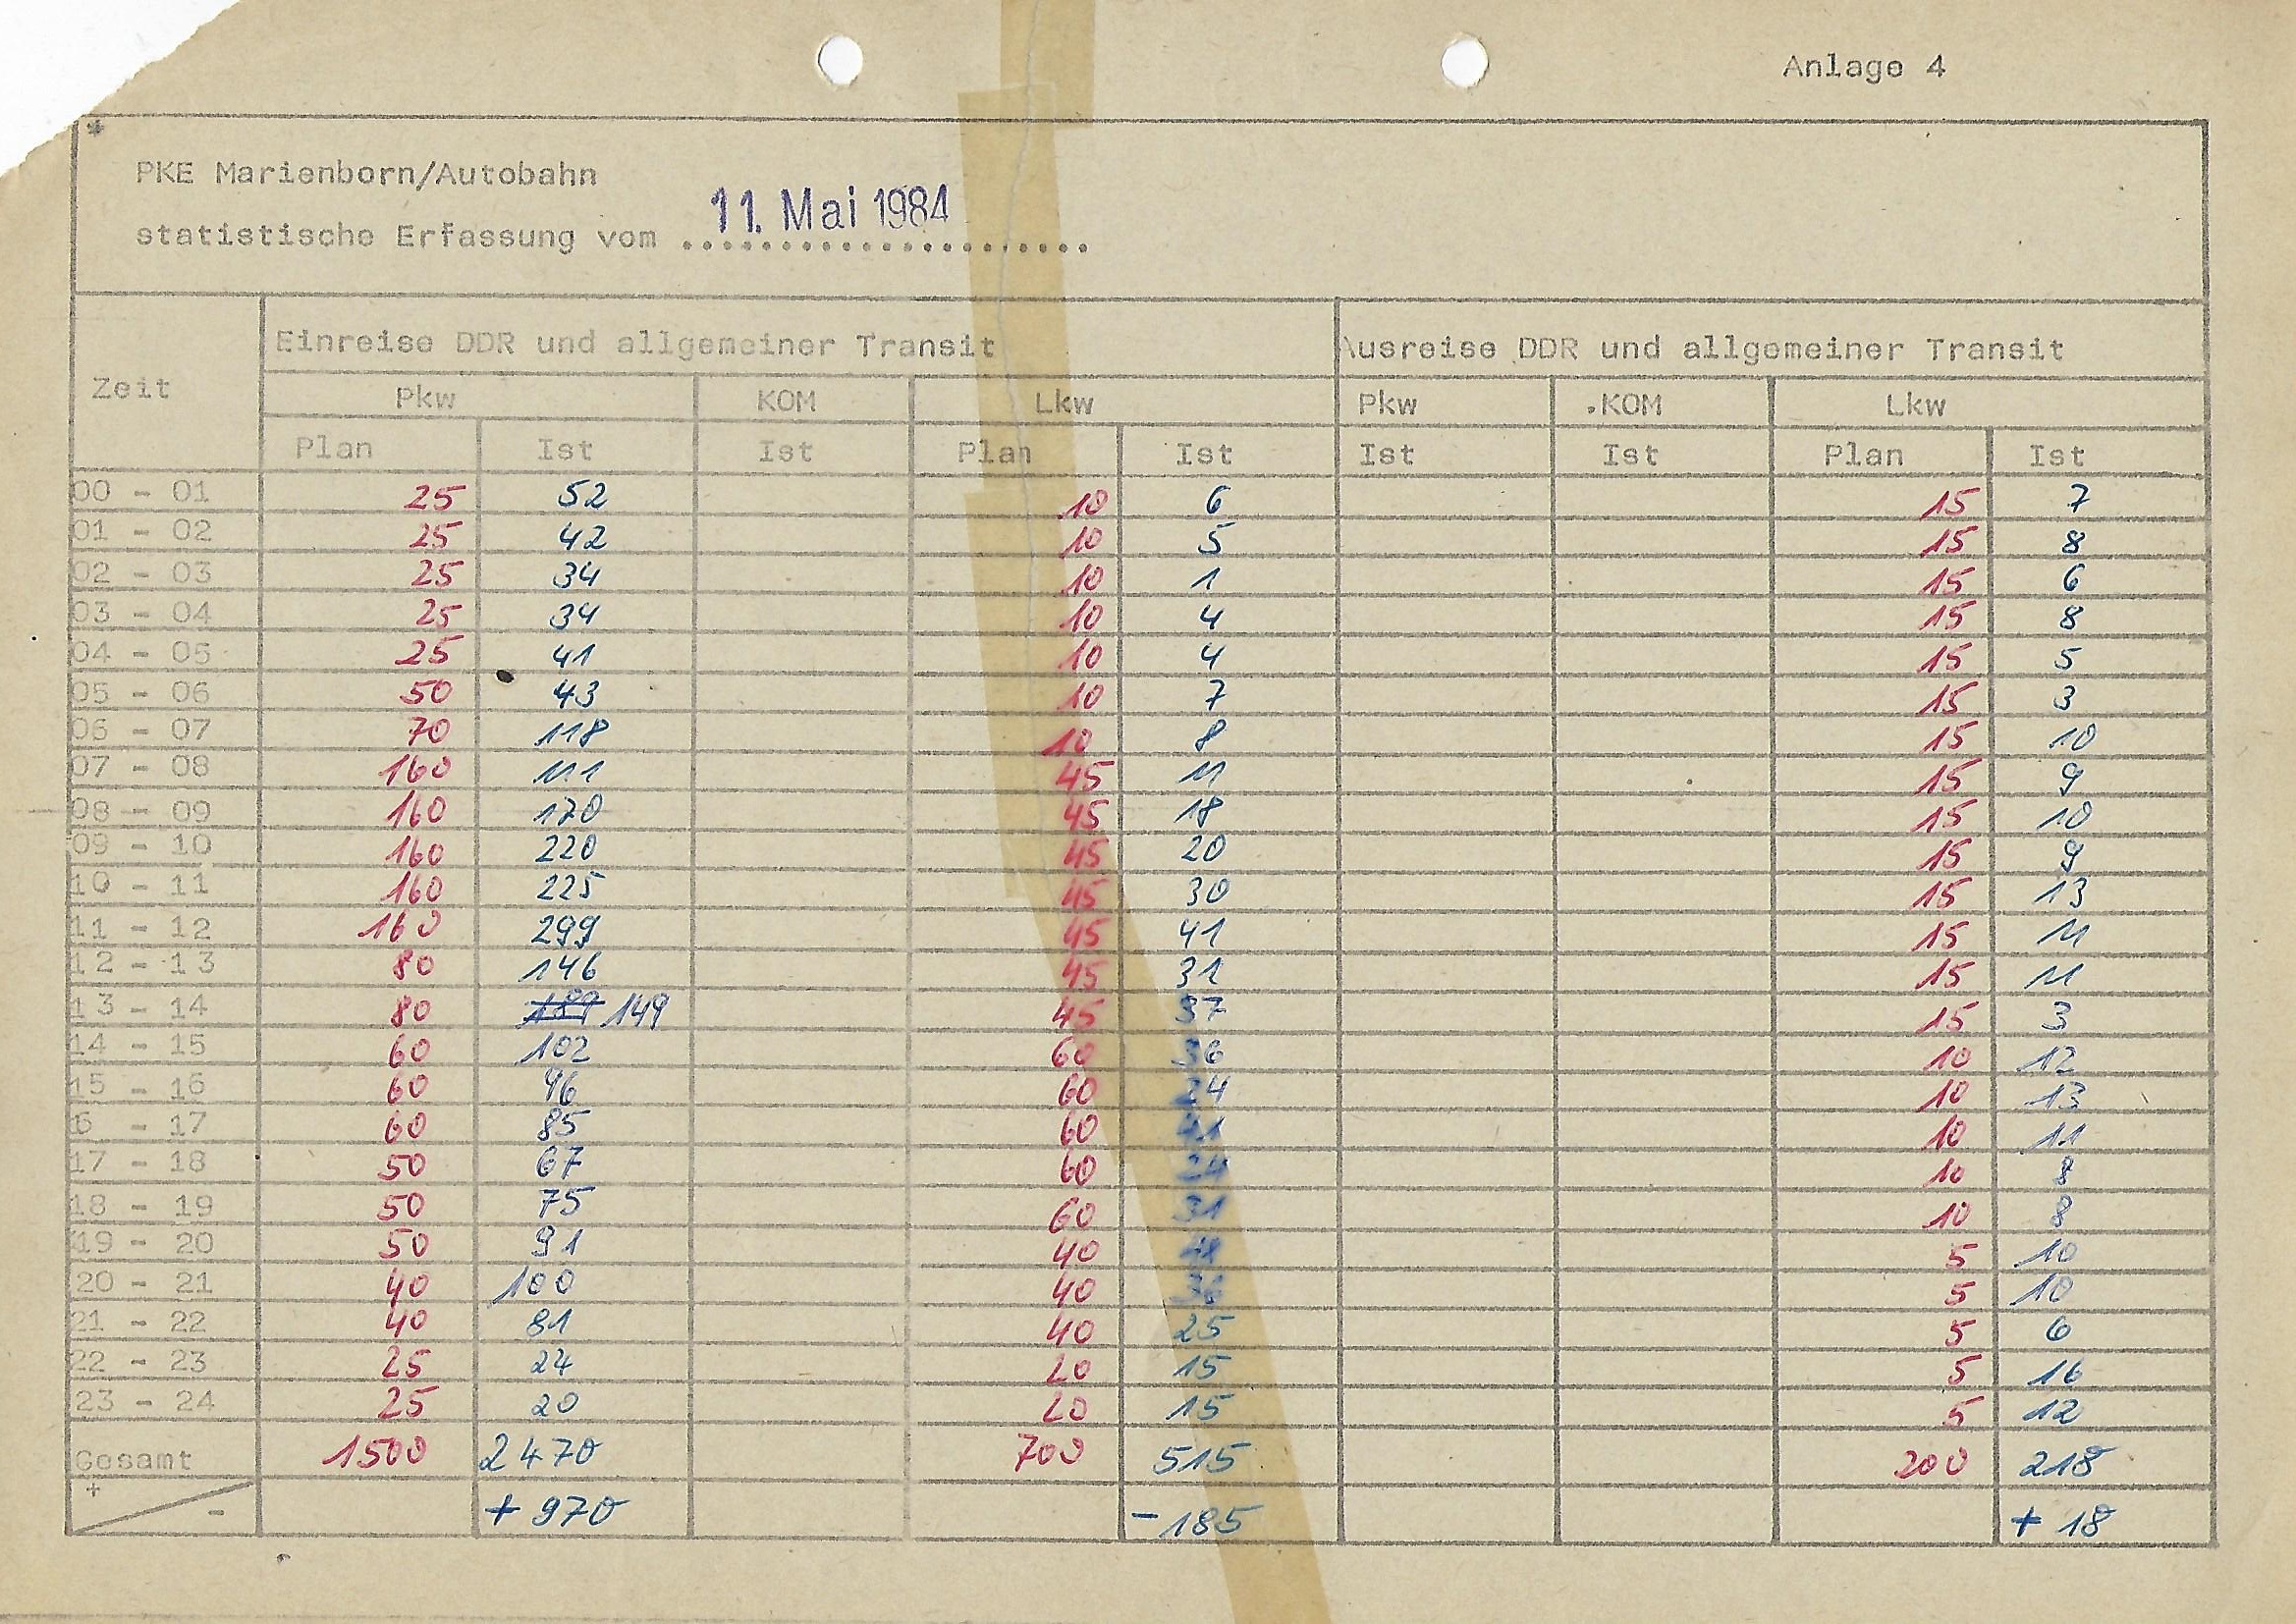 Anlage 4
*
PKE Marienborn/Autobahn
statistische Erfassung vom ...................... 11. Mai 1984
Zeit Einreise DDR und allgemeiner Transit Ausreise DDR und allgemeiner Transit
Pkw KOM Lkw Pkw .KOM Lkw
Plan Ist Ist Plan Ist Ist Ist Plan Ist
00 - 01 25 52 10 6 15 7
01 - 02 25 42 10 5 15 8
02 - 03 25 34 10 1 15 6
03 - 04 25 34 10 4 15 8
04 - 05 25 41 10 4 15 5
05 - 06 50 43 10 7 15 3
06 - 07 70 118 10 8 15 10
07 - 08 160 111 45 11 15 9
08 - 09 160 170 45 18 15 10
09 - 10 160 220 45 20 15 9
10 - 11 160 225 45 30 15 13
11 - 12 160 299 45 41 15 11
12 - 13 80 146 45 31 15 11
13 - 14 80 149 45 37 15 3
14 - 15 60 102 60 36 10 12
15 - 16 60 96 60 24 10 13
6 - 17 60 85 60 10 11
17 - 18 50 67 60 24 10 8
18 - 19 50 75 60 31 10 8
19 - 20 50 91 40 5 10
20 - 21 40 100 40 36 5 10
21 - 22 40 81 40 25 5 6
22 - 23 25 24 20 15 5 16
23 - 24 25 20 20 15 5 12
Gesamt 1500 2470 700 515 200 218
+ - + 970 - 185 + 18